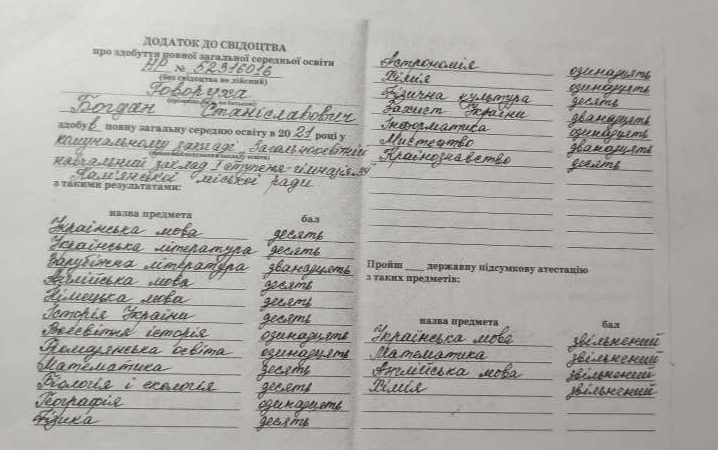 ДОДАТОК ДО СВІДОЦТВА
про здобуття повної загальної середньої освіти
НР № 52316016
(без свідоцтва не дійсний)
Говоруха
Богдан Станіславович
здобув повну загальну середню освіту в 2021 році у
комунальному закладі "Загальноосвітній
навчальний заклад І ступеня-гімназія
Кам'янської міської ради
з такими результатами:
назва предмета бал
Українська мова десять
Українська література десять
Зарубіжна література дванадцять
Англійська мова десять
Німецька мова десять
Історія України десять
Всесвітня історія одинадцять
Громадянська освіта одинадцять
Математика десять
Біологія і екологія десять
Географія одинадцять
Фізика десять
Астрономія одинадцять
Хімія одинадцять
Фізична культура десять
Захист України дванадцять
Інформатика одинадцять
Мистецтво дванадцять
Країнознавство десять
Пройш державну підсумкову атестацію
з таких предметів:
назва предмета бал
Українська мова звільнений
Математика звільнений
Англійська мова звільнений
Хімія звільнений